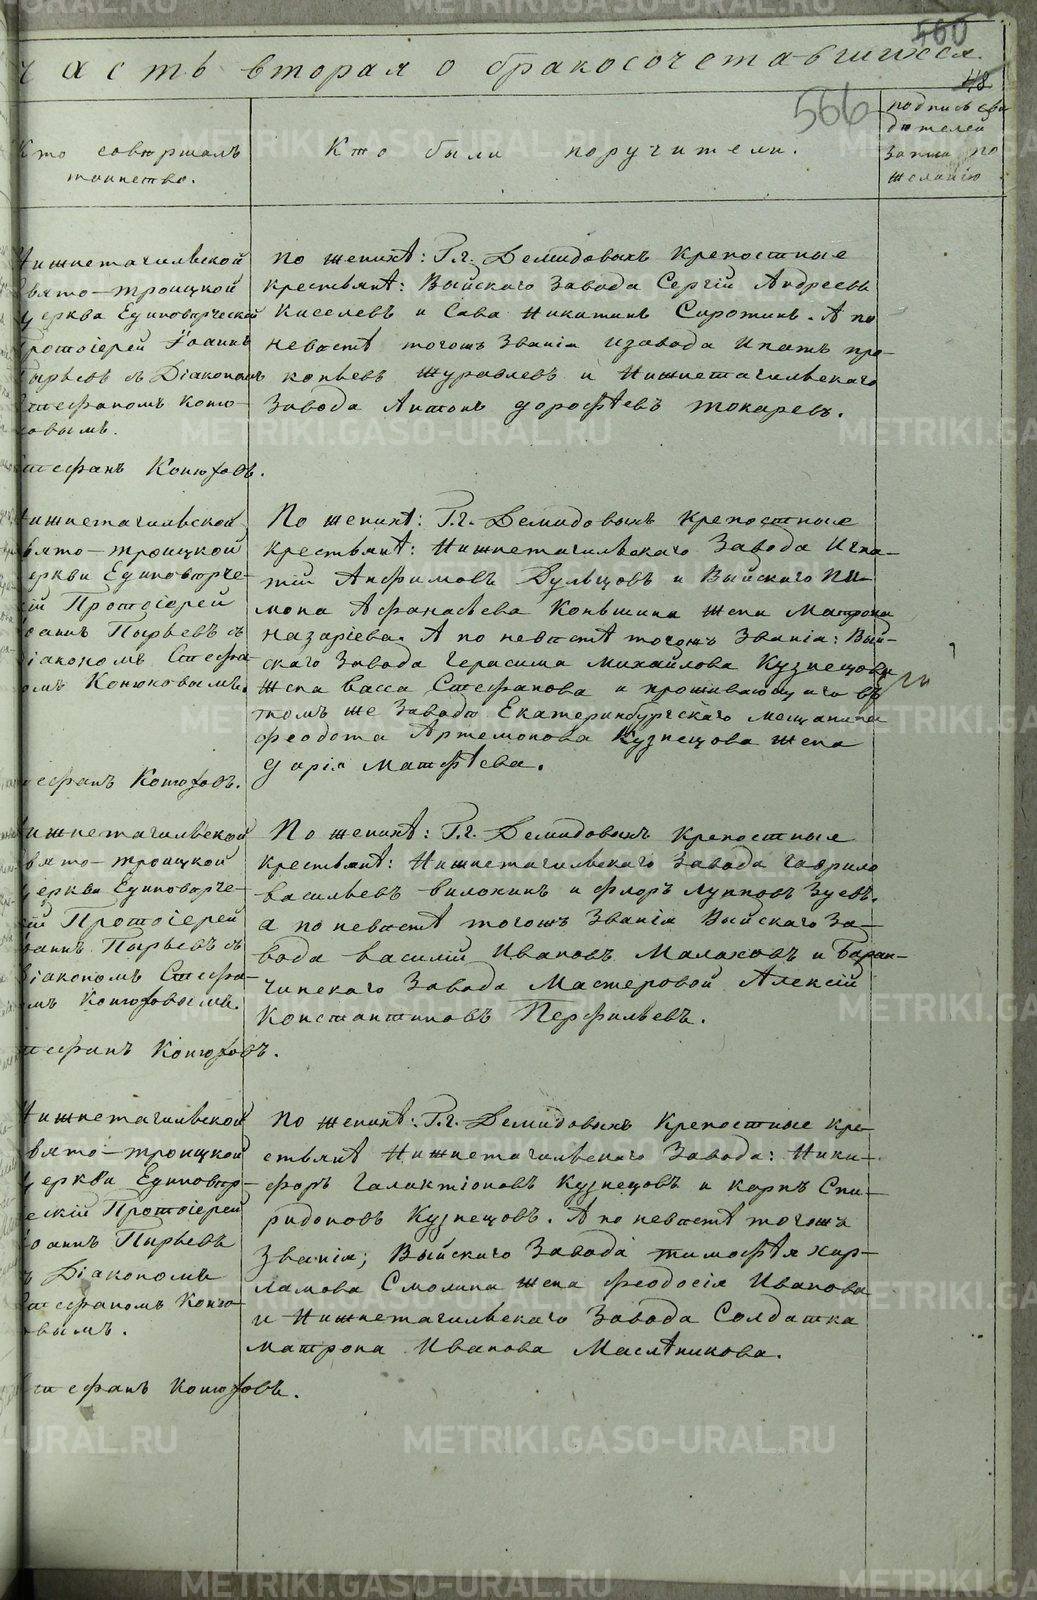 METRIKI.GASO-URAL.RU
560
часть вторая о бракосочетавшихся.
48
566
Кто совершалъ
таинство.
Кто были поручители.
подпись сви
дѣтелей
записи по
желанію
Нижнетагильской
Свято-троицкой
церкви Единовѣрческой
Протоіерей Іоаннъ
Пырьевъ съ Діакономъ
Стефаномъ Коню-
ховымъ.
Стефанъ Конюховъ.
по женихѣ: Г.г. Демидовыхъ Крепостные
крестьянѣ: Выйскаго завода Сергій Андреевъ
Киселевъ и Сава Никитинъ Сиротинъ. А по
невѣстѣ тогожъ званія изавода Ипатъ про-
копьевъ журавлевъ и Нижнетагильскаго
Завода Антонъ дорофѣевъ токаревъ.
Нижнетагильской
Свято-троицкой
церкви Единовѣрче-
ской Протоіерей
Іоаннъ Пырьевъ съ
діакономъ Стефа-
номъ Конюховымъ.
Стефанъ Конюховъ.
По женихѣ: Г.г. Демидовыхъ крепостные
крестьянѣ: Нижнетагильскаго Завода Игна-
тій Анфимовъ Дульцовъ и Выйскаго пи-
мона Афанасьева Коньшина жена Матрона
назаріева. А по невестѣ тогожъ званія: Вый-
скаго завода Герасима михайлова Кузнецова
жена васса Стефанова и проживающаго въ
томъ же заводѣ Екатеринбургскаго мещанина
феодота Артемонова Кузнецова жена
дарія Матфѣева.
Нижнетагильской
Свято-троицкой
церкви Единовѣрче-
ской Протоіерей
Іоаннъ Пырьевъ съ
діакономъ Стефа-
номъ Конюховымъ.
Стефанъ Конюховъ.
По женихѣ: Г.г. Демидовыхъ крепостные
крестьянѣ: Нижнетагильскаго завода гаврило
васильевъ вилохинъ и флоръ лупповъ Зуевъ.
а по невестѣ тогожъ званія Выйскаго за-
вода василій Ивановъ Малаховъ и Баран-
чинскаго завода Мастеровой Алексій
Константиновъ Перфильевъ.
Нижнетагильской
Свято-троицкой
церкви Единовѣр-
ческій Протоіерей
Іоаннъ Пырьевъ
съ Діакономъ
Стефаномъ Коню-
ховымъ.
Стефанъ Конюховъ.
По женихѣ: Г.г. Демидовыхъ Крепостные кре-
стьянѣ Нижнетагильскаго Завода: Ники-
форъ галактіоновъ Кузнецовъ и карпъ Спи-
ридоновъ Кузнецовъ. А по невестѣ тогожъ
званія; Выйскаго Завода тимофѣя хар-
ламова Смолина жена феодосія Иванова
и Нижнетагильскаго Завода Солдатка
матрона Иванова Маслѣникова.